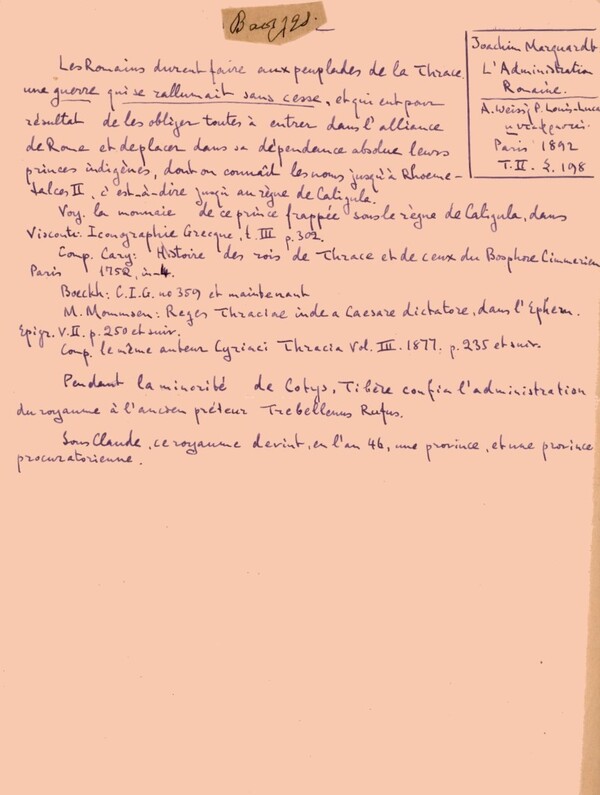 Joachim Marquardt
L'Administration
Romaine.
A. Weiss; P. Louis-Luca
Paris 1892
T. II. S. 198
Les Romains durent faire aux peuplades de la Thrace
une guerre qui se rallumait sans cesse, et qui eut pour
résultat de les obliger toutes à entrer dans l'alliance
de Rome et de placer dans sa dépendance absolue leurs
princes indigènes, dont on connaît les noms jusqu'à Rhoeme-
talces II, c'est-à-dire jusqu'au règne de Caligula.
Voy. la monnaie de ce prince frappée sous le règne de Caligula, dans
Visconti: Iconographie Grecque, t. III p. 302.
Comp. Cary: Histoire des rois de Thrace et de ceux du Bosphore Cimmerien
Paris 1752, in-4.
Boeckh: C.I.G. no 359 et maintenant
M. Mommsen: Reges Thraciae inde a Caesare dictatore, dans l'Ephem.
Epigr. V. II. p. 250 et suiv.
Comp. le même auteur Cyriaci Thracia Vol. III. 1877. p. 235 et suiv.
Pendant la minorité de Cotys, Tibère confia l'administration
du royaume à l'ancien préteur Trebellenus Rufus.
Sous Claude, ce royaume devint, en l'an 46, une province, et une province
procuratorienne.